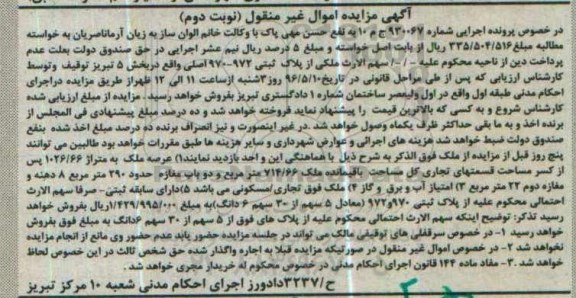 آگهی مزایده اموال غیر منقول (نوبت دوم)
در خصوص پرونده اجرایی شماره ۹۳۰۰۶۷ ج م ۱۰ به نفع حسن مهی پاک با وکالت خانم الوان ساز به زیان آرماناصریان به خواسته
مطالبه مبلغ ۳۳۵/۵۰۴/۵۱۶ ریال از بابت اصل خواسته و مبلغ ۵ درصد ریال نیم عشر اجرایی در حق صندوق دولت بعلت عدم
پرداخت دین از ناحیه محکوم علیه سهم الارث ملکی از پلاک ثبتی ۹۷۲-۹۷۰ اصلی واقع دربخش ۵ تبریز توقیف وتوسط
کارشناس ارزیابی که پس از طی مراحل قانونی در تاریخ ۹۶/۵/۱۰ روز ۳شنبه ازساعت ۱۱ الی ۱۲ ظهراز طریق مزایده دراجرای
احکام مدنی طبقه اول واقع در اول ولیعصر ساختمان شماره ۱ دادگستری تبریز بفروش خواهد رسید. مزایده از مبلغ ارزیابی شده
کارشناس شروع و به کسی که بالاترین قیمت را پیشنهاد نماید فروخته خواهد شد و ده درصد مبلغ پیشنهادی فی المجلس از
برنده اخذ و به ما بقی حداکثر ظرف یکماه وصول خواهد شد .در غیر اینصورت و نیز انصراف برنده ده درصد مبلغ اخذ شده بنفع
صندوق دولت ضبط خواهد شد هزینه های اجرائی و عوارض شهرداری و سایر هزینه ها طبق مقررات خواهد بود طالبین می توانند
پنج روز قبل از مزایده از ملک فوق الذکر به شرح ذیل با هماهنگی این و احد بازدید نمایند۱) عرصه ملک به متراژ ۱۰۲۶/۶۶ پس
از کسر مساحت قسمتهای تجاری کل مساحت باقیمانده ملک ۷۱۴/۶۶ متر مربع و دو باب مغازه ) حدود ۲۹۰ متر مربع ۸ دهنه و
مغازه دوم ۲۲ متر مربع ۳) امتیاز آب و برق و گاز ۴) ملک فوق تجاری/مسکونی می باشد ۵)دارای سابقه ثبتی- صرفا سهم الارث
احتمالی محکوم علیه از پلاک ثبتی ۹۷۲و۹۷۰ (معادل ۵ سهم از ۳۰ سهم ۶ دانگ)به مبلغ ۱/۴۲۹/۹۹۵/۰۰۰ریال بفروش خواهد
رسید تذکر: توضیح اینکه سهم الارث احتمالی محکوم علیه از پلاک های فوق از ۵ سهم از ۳۰ سهم ۶دانگ به مبلغ فوق بفروش
خواهد رسید ۱- در خصوص سرقفلی های توقیفی مالک می تواند در جلسه مزایده حضور یابد عدم حضور وی مانع از انجام مزایده
نخواهد شد ۲- در خصوص اموال غیر منقول در صورتیکه مزایده قبلا به اجاره واگذار شده حق شخص ثالث در این خصوص لحاظ
خواهد شد .۳- مفاد ماده ۱۴۴ قانون اجرای احکام مدنی در خصوص محکوم له خریدار مجری خواهد شد.
ح/۳۲۳۷دادورز اجرای احکام مدنی شعبه ۱۰ مرکز تبریز